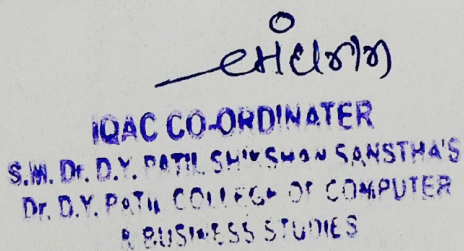 IQAC CO-ORDINATER
S.W. Dr. D.Y. PATIL SHIKSHAN SANSTHA'S
Dr. D.Y. PATIL COLLEGE OF COMPUTER
& BUSINESS STUDIES